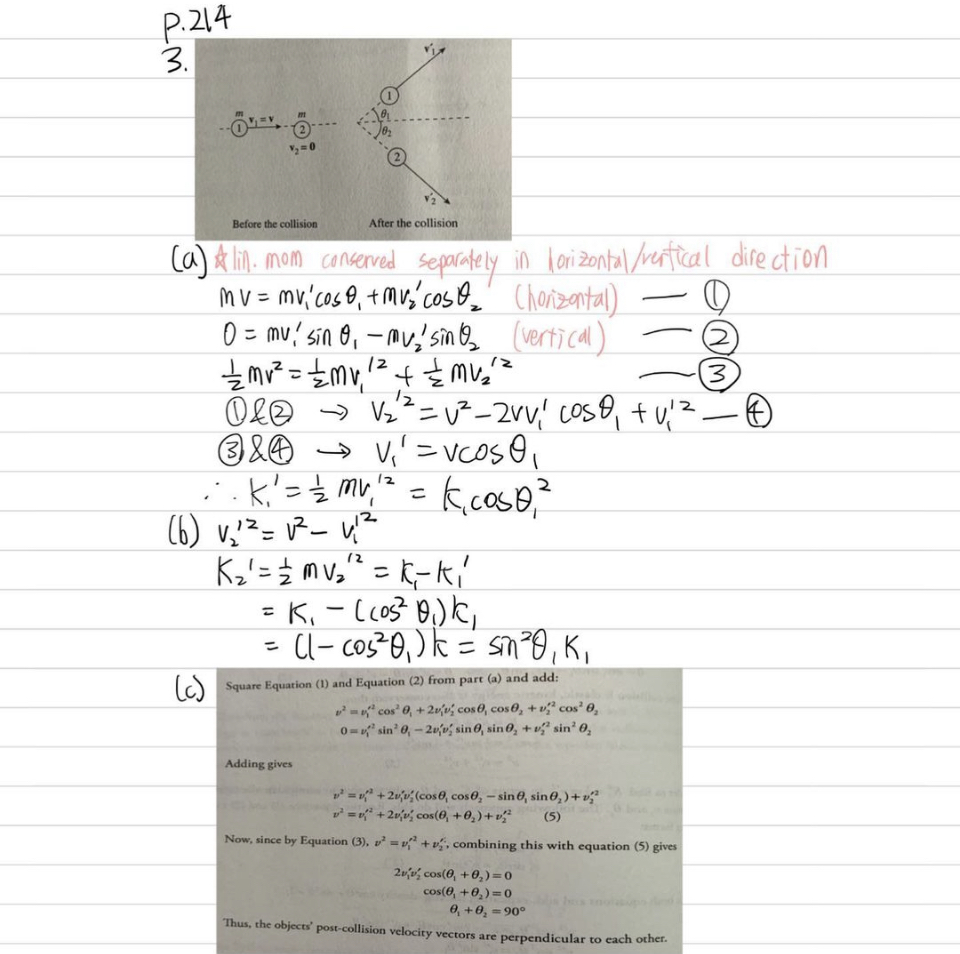 p.214
3.
m v₁=v m
① ②
v₂=0
v₁′
①
θ₁
θ₂
②
v₂′
Before the collision After the collision
(a) ☆ lin. mom conserved separately in horizontal/vertical direction
mv = mv₁′cosθ₁ + mv₂′cosθ₂ (horizontal) — ①
0 = mv₁′ sin θ₁ − mv₂′ sin θ₂ (vertical) — ②
½mv² = ½mv₁′² + ½mv₂′² — ③
①&② → v₂′² = v² − 2vv₁′ cosθ₁ + v₁′² — ④
③&④ → v₁′ = vcosθ₁
∴ K₁′ = ½ mv₁′² = K₁cosθ₁²
(b) v₂′² = v² − v₁′²
K₂′ = ½ mv₂′² = K₁ − K₁′
= K₁ − (cos² θ₁)K₁
= (1 − cos²θ₁)K = sin²θ₁ K₁
(c) Square Equation (1) and Equation (2) from part (a) and add:
v² = v₁′² cos² θ₁ + 2v₁′v₂′ cosθ₁ cosθ₂ + v₂′² cos² θ₂
0 = v₁′² sin² θ₁ − 2v₁′v₂′ sinθ₁ sinθ₂ + v₂′² sin² θ₂
Adding gives
v² = v₁′² + 2v₁′v₂′(cosθ₁ cosθ₂ − sinθ₁ sinθ₂) + v₂′²
v² = v₁′² + 2v₁′v₂′ cos(θ₁ + θ₂) + v₂′² (5)
Now, since by Equation (3), v² = v₁′² + v₂′², combining this with equation (5) gives
2v₁′v₂′ cos(θ₁ + θ₂) = 0
cos(θ₁ + θ₂) = 0
θ₁ + θ₂ = 90°
Thus, the objects' post-collision velocity vectors are perpendicular to each other.